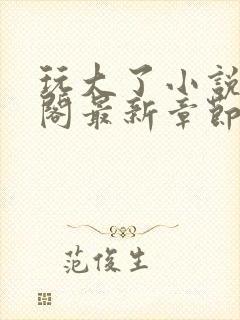 玩大了小說
閣最新章節
范俊生